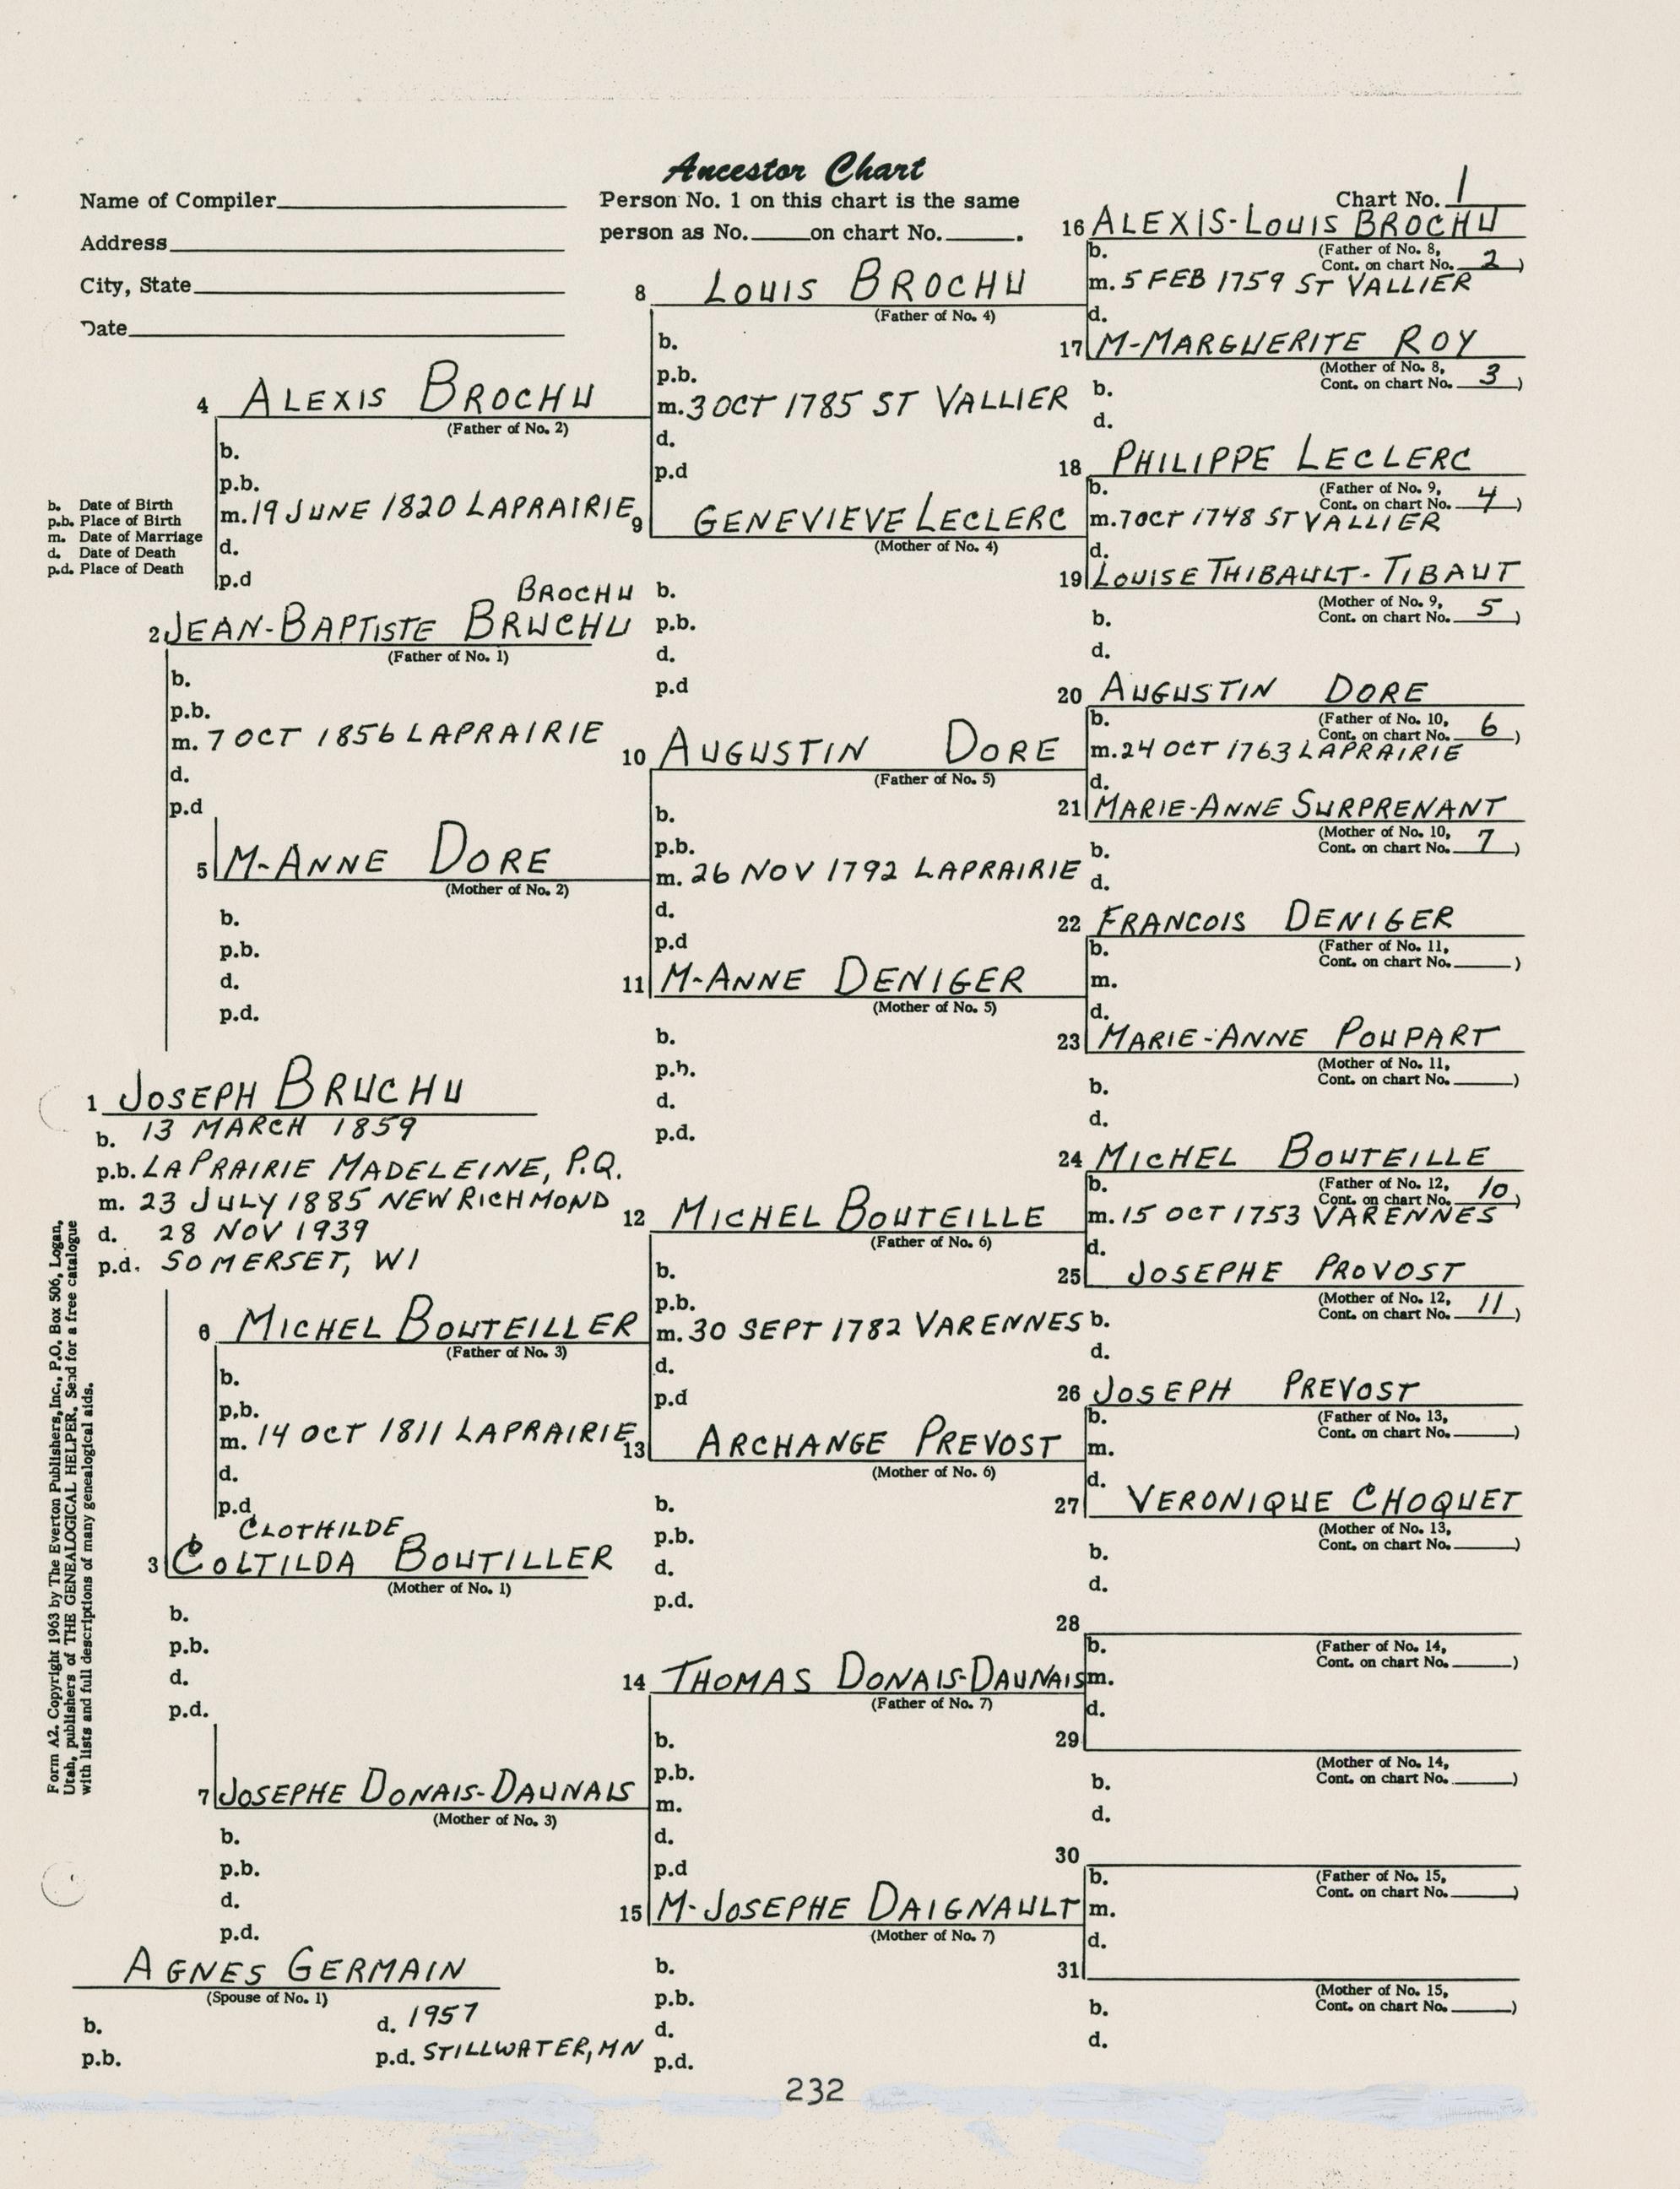 Ancestor Chart
Name of Compiler
Address
City, State
Date
Person No. 1 on this chart is the same
person as No. on chart No. .
Chart No. 1
16 ALEXIS-LOUIS BROCHU
b. (Father of No. 8,
Cont. on chart No. 2 )
m. 5 FEB 1759 ST VALLIER
d.
8 LOUIS BROCHU
(Father of No. 4)
b.
p.b.
m. 3 OCT 1785 ST VALLIER
d.
p.d
17 M-MARGUERITE ROY
(Mother of No. 8,
b. Cont. on chart No. 3 )
d.
4 ALEXIS BROCHU
(Father of No. 2)
b.
p.b.
m. 19 JUNE 1820 LAPRAIRIE
d.
p.d
b. Date of Birth
p.b. Place of Birth
m. Date of Marriage
d. Date of Death
p.d. Place of Death
18 PHILIPPE LECLERC
b. (Father of No. 9,
Cont. on chart No. 4 )
m. 7 OCT 1748 ST VALLIER
d.
9 GENEVIEVE LECLERC
(Mother of No. 4)
b.
p.b.
d.
p.d
19 LOUISE THIBAULT-TIBAUT
(Mother of No. 9,
b. Cont. on chart No. 5 )
d.
BROCHU
2 JEAN-BAPTISTE BRUCHU
(Father of No. 1)
b.
p.b.
m. 7 OCT 1856 LAPRAIRIE
d.
p.d
20 AUGUSTIN DORE
b. (Father of No. 10,
Cont. on chart No. 6 )
m. 24 OCT 1763 LAPRAIRIE
d.
10 AUGUSTIN DORE
(Father of No. 5)
b.
p.b.
m. 26 NOV 1792 LAPRAIRIE
d.
p.d
21 MARIE-ANNE SURPRENANT
(Mother of No. 10,
b. Cont. on chart No. 7 )
d.
5 M-ANNE DORE
(Mother of No. 2)
b.
p.b.
d.
p.d.
22 FRANCOIS DENIGER
b. (Father of No. 11,
Cont. on chart No. )
m.
d.
11 M-ANNE DENIGER
(Mother of No. 5)
b.
p.b.
d.
p.d.
23 MARIE-ANNE POUPART
(Mother of No. 11,
b. Cont. on chart No. )
d.
1 JOSEPH BRUCHU
b. 13 MARCH 1859
p.b. LAPRAIRIE MADELEINE, P.Q.
m. 23 JULY 1885 NEW RICHMOND
d. 28 NOV 1939
p.d. SOMERSET, WI
24 MICHEL BOUTEILLE
b. (Father of No. 12,
Cont. on chart No. 10 )
m. 15 OCT 1753 VARENNES
d.
12 MICHEL BOUTEILLE
(Father of No. 6)
b.
p.b.
m. 30 SEPT 1782 VARENNES
d.
p.d
25 JOSEPHE PROVOST
(Mother of No. 12,
b. Cont. on chart No. 11 )
d.
6 MICHEL BOUTEILLER
(Father of No. 3)
b.
p.b.
m. 14 OCT 1811 LAPRAIRIE
d.
p.d
26 JOSEPH PREVOST
b. (Father of No. 13,
Cont. on chart No. )
m.
d.
13 ARCHANGE PREVOST
(Mother of No. 6)
b.
p.b.
d.
p.d.
27 VERONIQUE CHOQUET
(Mother of No. 13,
b. Cont. on chart No. )
d.
CLOTHILDE
3 COLTILDA BOUTILLER
(Mother of No. 1)
b.
p.b.
d.
p.d.
28
b. (Father of No. 14,
m. Cont. on chart No. )
d.
14 THOMAS DONAIS-DAUNAIS
(Father of No. 7)
b.
p.b.
m.
d.
p.d
29
(Mother of No. 14,
b. Cont. on chart No. )
d.
7 JOSEPHE DONAIS-DAUNAIS
(Mother of No. 3)
b.
p.b.
d.
p.d.
30
b. (Father of No. 15,
Cont. on chart No. )
m.
d.
15 M-JOSEPHE DAIGNAULT
(Mother of No. 7)
b.
p.b.
d.
p.d.
31
(Mother of No. 15,
b. Cont. on chart No. )
d.
AGNES GERMAIN
(Spouse of No. 1)
b. d. 1957
p.b. p.d. STILLWATER, MN
Form A2. Copyright 1963 by The Everton Publishers, Inc., P.O. Box 506, Logan,
Utah, publishers of THE GENEALOGICAL HELPER. Send for a free catalogue
with lists and full descriptions of many genealogical aids.
232